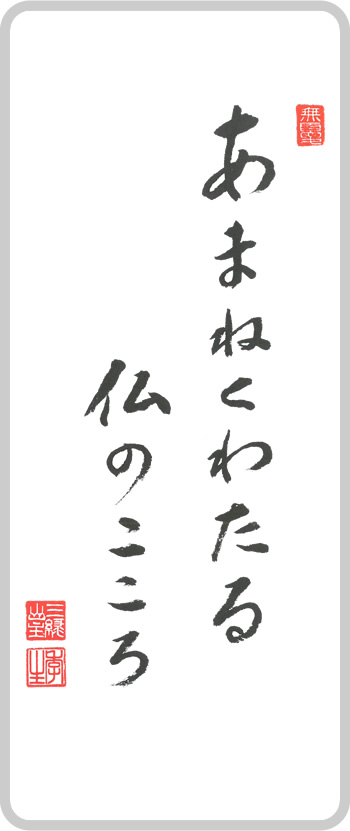 あまねくわたる
仏のこころ